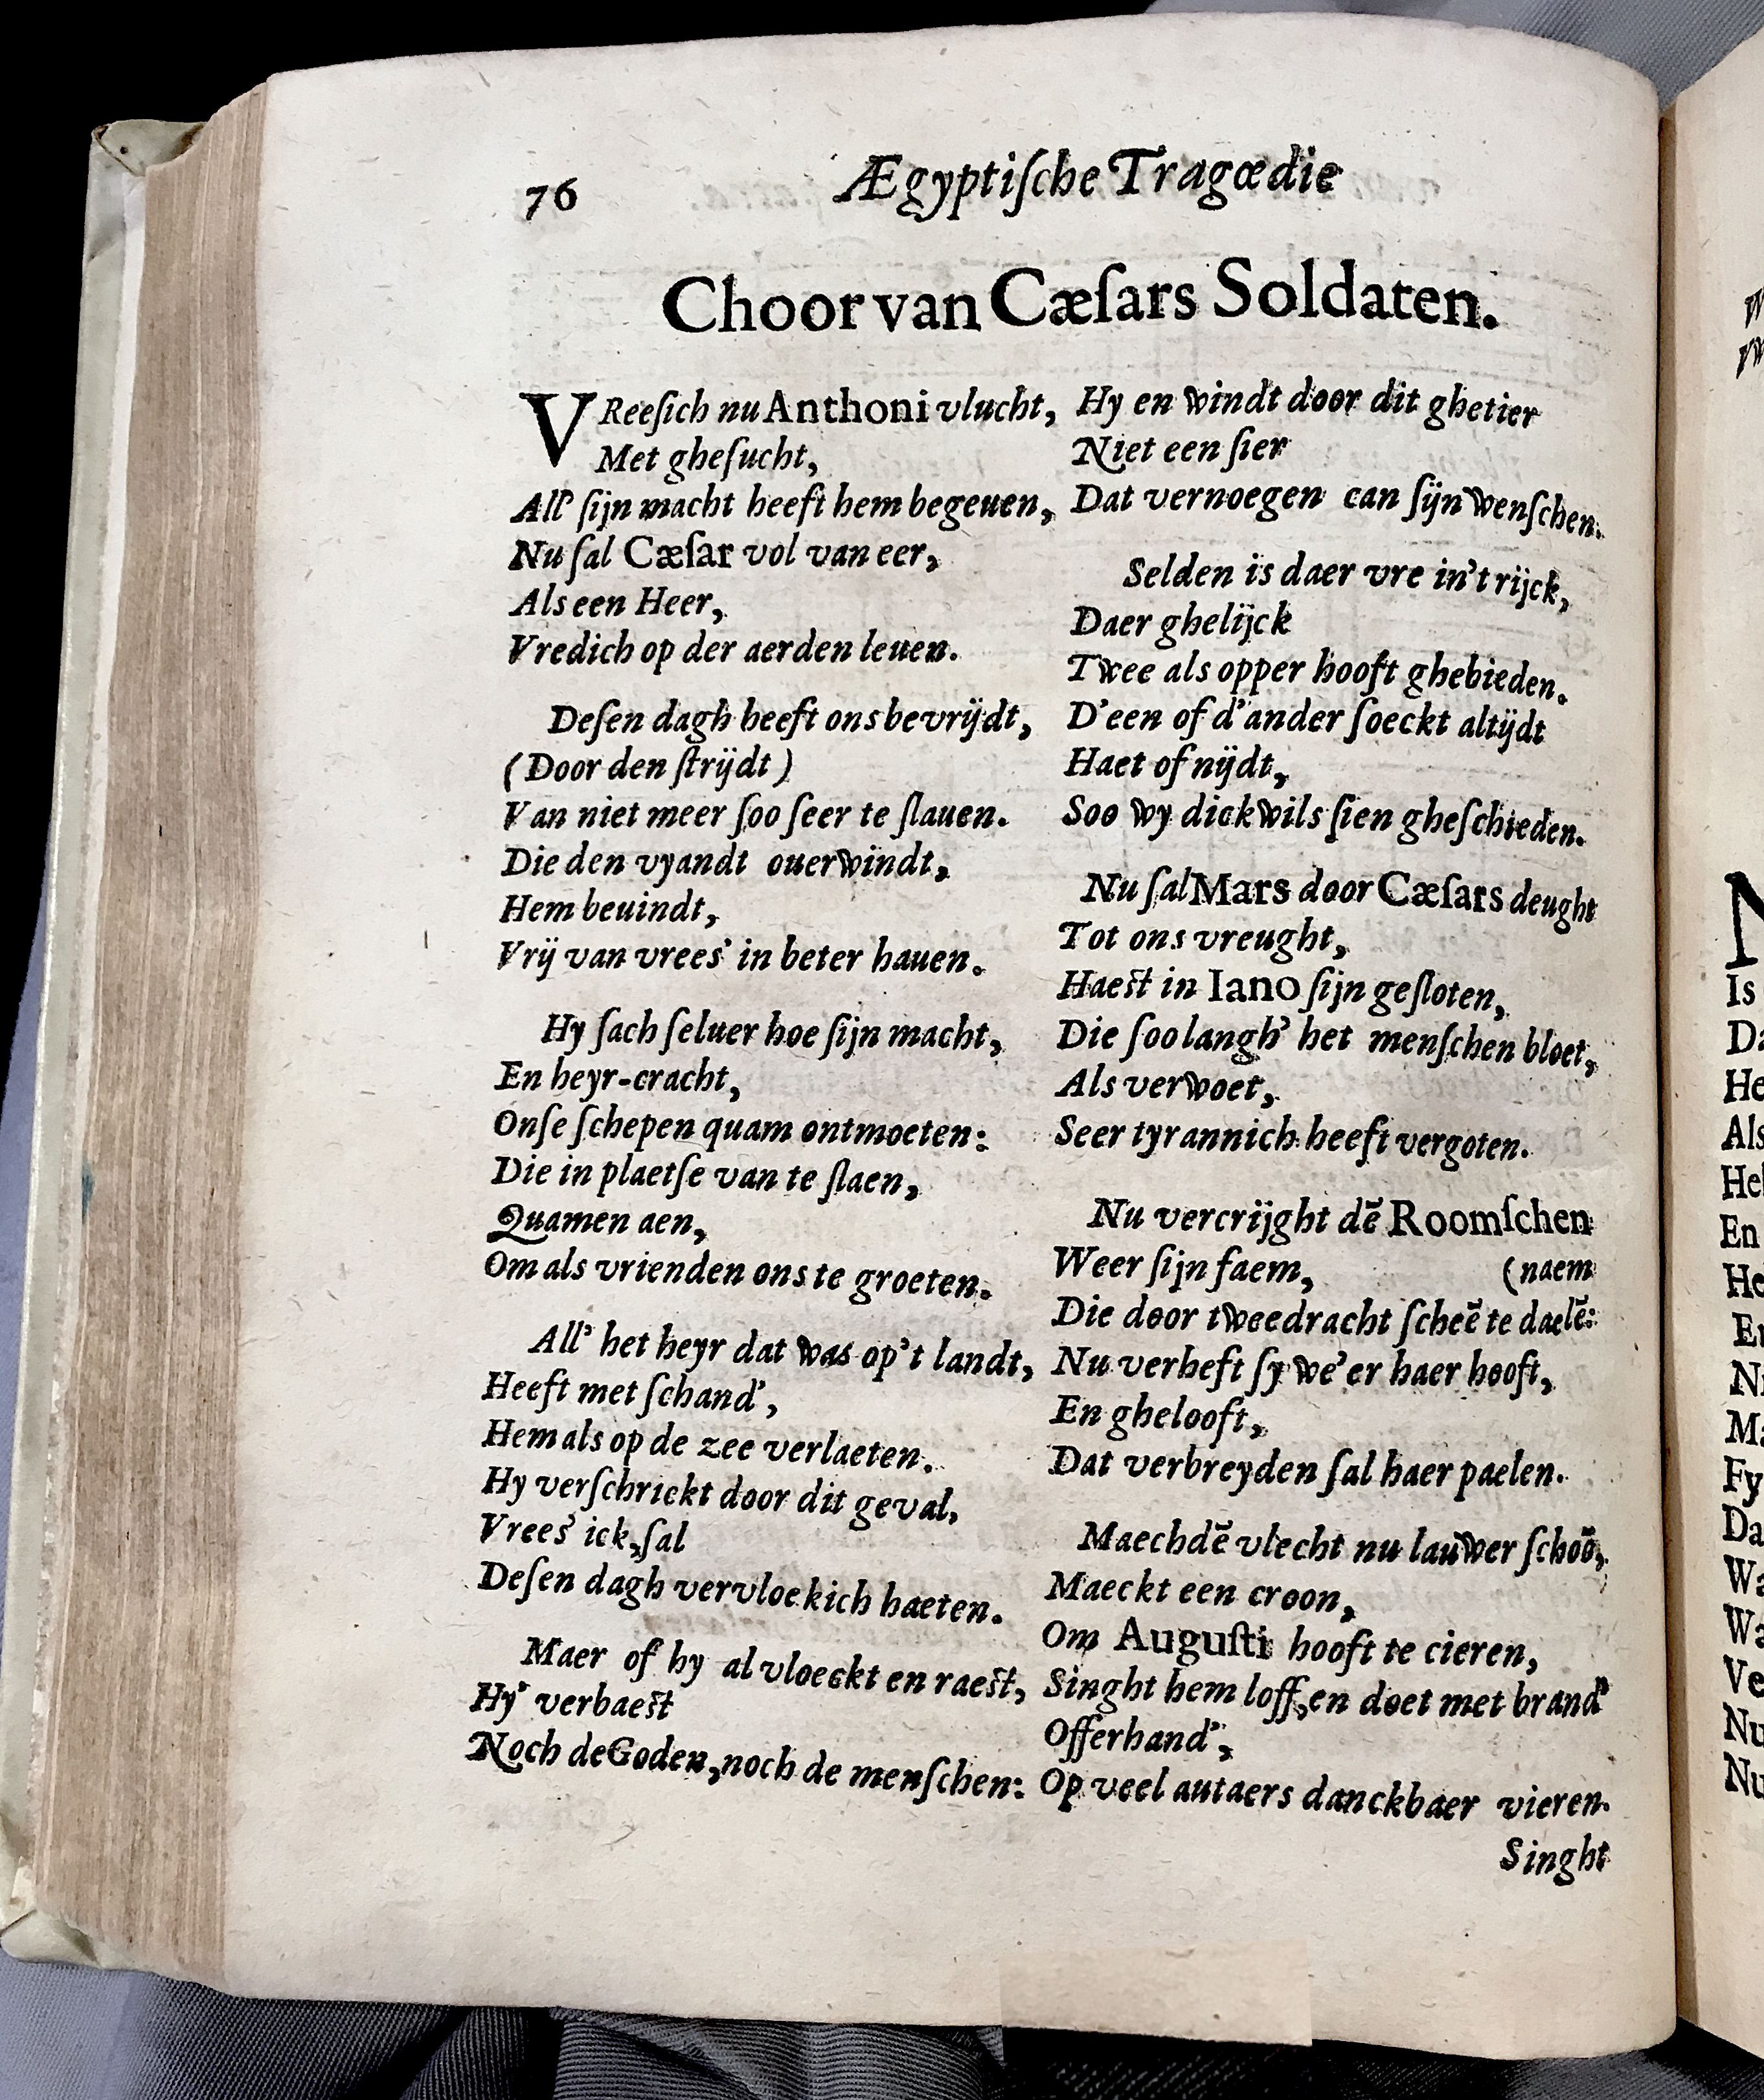 76
Ægyptiſche Tragœdie
Choor van Cæſars Soldaten.
VReeſich nu Anthoni vlucht,
Met gheſucht,
All' ſijn macht heeft hem begeuen,
Nu ſal Cæſar vol van eer,
Als een Heer,
Vredich op der aerden leuen.
Deſen dagh heeft ons bevrijdt,
(Door den ſtrijdt)
Van niet meer ſoo ſeer te ſlauen.
Die den vyandt ouerwindt,
Hem beuindt,
Vrij van vrees' in beter hauen.
Hy ſach ſeluer hoe ſijn macht,
En heyr-cracht,
Onſe ſchepen quam ontmoeten:
Die in plaetſe van te ſlaen,
Quamen aen,
Om als vrienden ons te groeten.
All' het heyr dat was op't landt,
Heeft met ſchand',
Hem als op de zee verlaeten.
Hy verſchrickt door dit geval,
Vrees' ick, ſal
Deſen dagh vervloekich haeten.
Maer of hy al vloeckt en raeſt,
Hy' verbaeſt
Noch de Goden, noch de menſchen:
Hy en windt door dit ghetier
Niet een ſier
Dat vernoegen can ſijn wenſchen.
Selden is daer vre in't rijck,
Daer ghelijck
Twee als opper hooft ghebieden.
D'een of d'ander ſoeckt altijdt
Haet of nijdt,
Soo wy dickwils ſien gheſchieden.
Nu ſal Mars door Cæſars deught
Tot ons vreught,
Haeſt in Iano ſijn geſloten,
Die ſoo langh' het menſchen bloet,
Als verwoet,
Seer tyrannich heeft vergoten.
Nu vercrijght dē Roomſchen
Weer ſijn faem, (naem
Die door tweedracht ſcheē te daelē:
Nu verheft ſy we'er haer hooft,
En ghelooft,
Dat verbreyden ſal haer paelen.
Maechdē vlecht nu lauwer ſchoō,
Maeckt een croon,
Om Auguſti hooft te cieren,
Singht hem loff, en doet met brand'
Offerhand',
Op veel autaers danckbaer vieren.
Singht
N
Is
Da
He
Als
Hel
En
He
En
Ni
Ma
Fy
Da
Wa
Wa
Ve
Nu
Nu